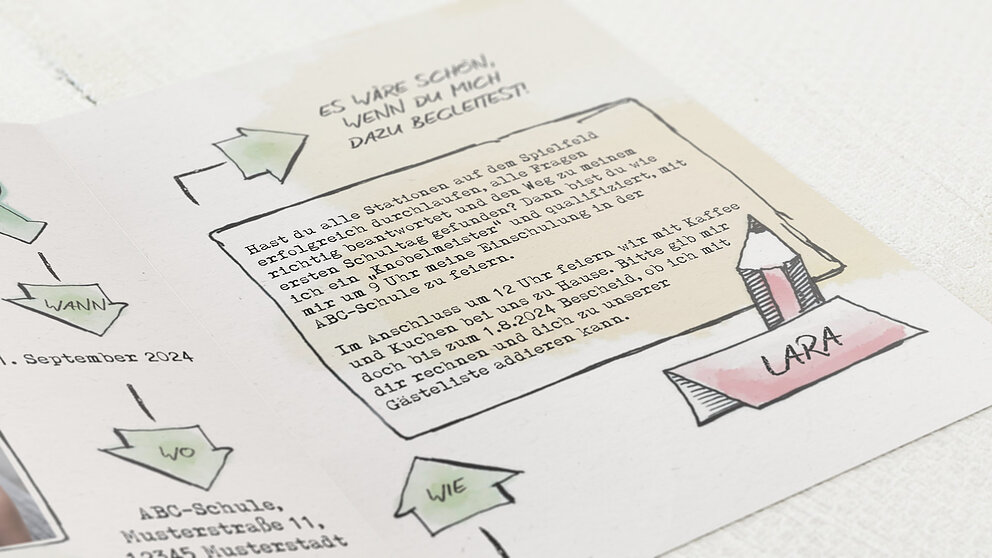 WANN
1. September 2024
WO
ABC-Schule,
Musterstraße 11,
12345 Musterstadt
WIE
ES WÄRE SCHÖN,
WENN DU MICH
DAZU BEGLEITEST!
Hast du alle Stationen auf dem Spielfeld
erfolgreich durchlaufen, alle Fragen
richtig beantwortet und den Weg zu meinem
ersten Schultag gefunden? Dann bist du wie
ich ein „Knobelmeister" und qualifiziert, mit
mir um 9 Uhr meine Einschulung in der
ABC-Schule zu feiern.
Im Anschluss um 12 Uhr feiern wir mit Kaffee
und Kuchen bei uns zu Hause. Bitte gib mir
doch bis zum 1.8.2024 Bescheid, ob ich mit
dir rechnen und dich zu unserer
Gästeliste addieren kann.
LARA